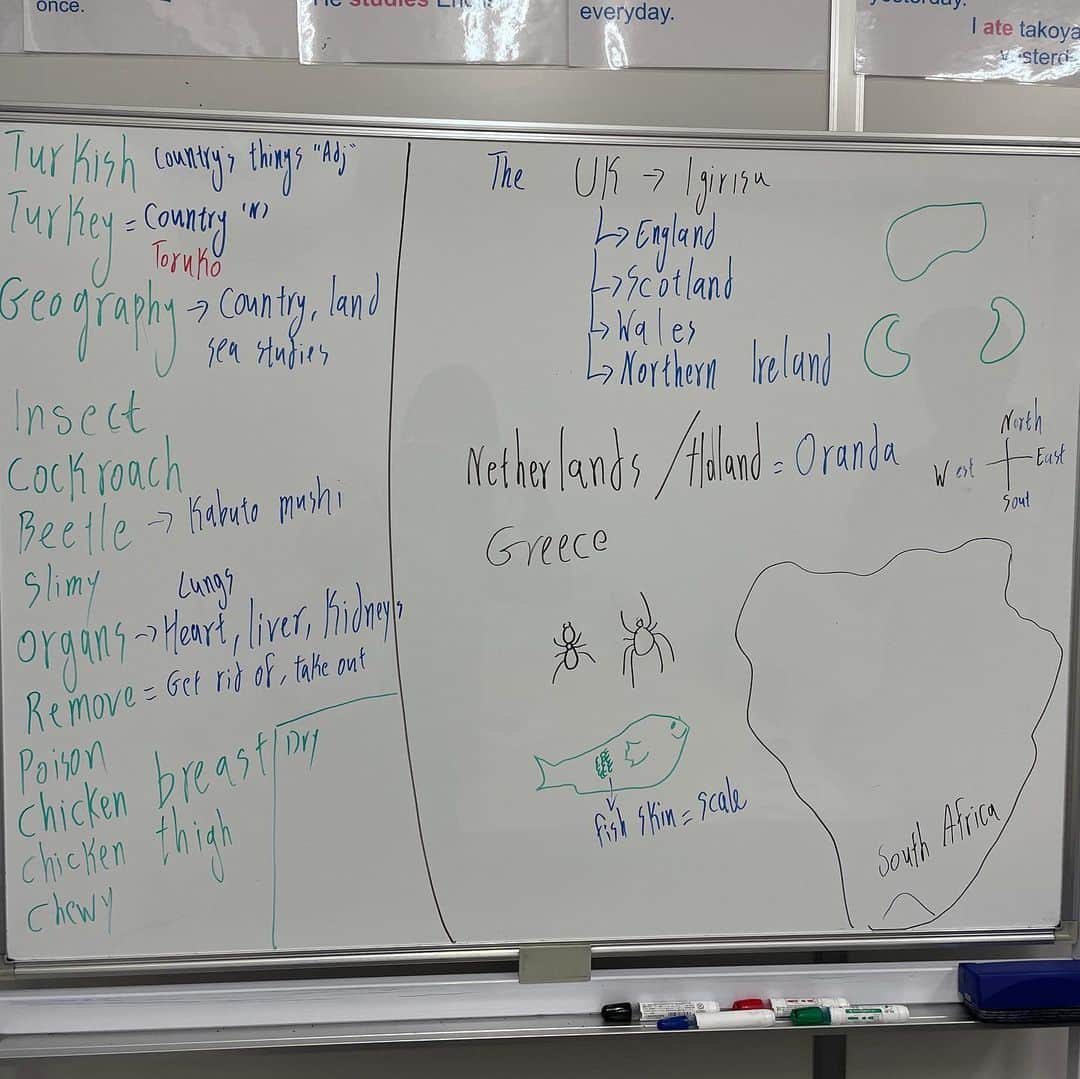 once.
He studies
everyday.
yesterday.
I ate takoya
Turkish Country's things "Adj"
Turkey = Country "N"
Toruko
Geography → Country, land
sea studies
Insect
Cockroach
Beetle → Kabuto mushi
Slimy
Lungs
Organs → Heart, liver, Kidneys
Remove = Get rid of, take out
Poison
Chicken breast
Chicken thigh
Chewy
Dry
The UK → Igirisu
↳ England
↳ Scotland
↳ Wales
↳ Northern Ireland
Netherlands / Holland = Oranda
North
West East
Sout
Greece
fish skin = scale
South Africa